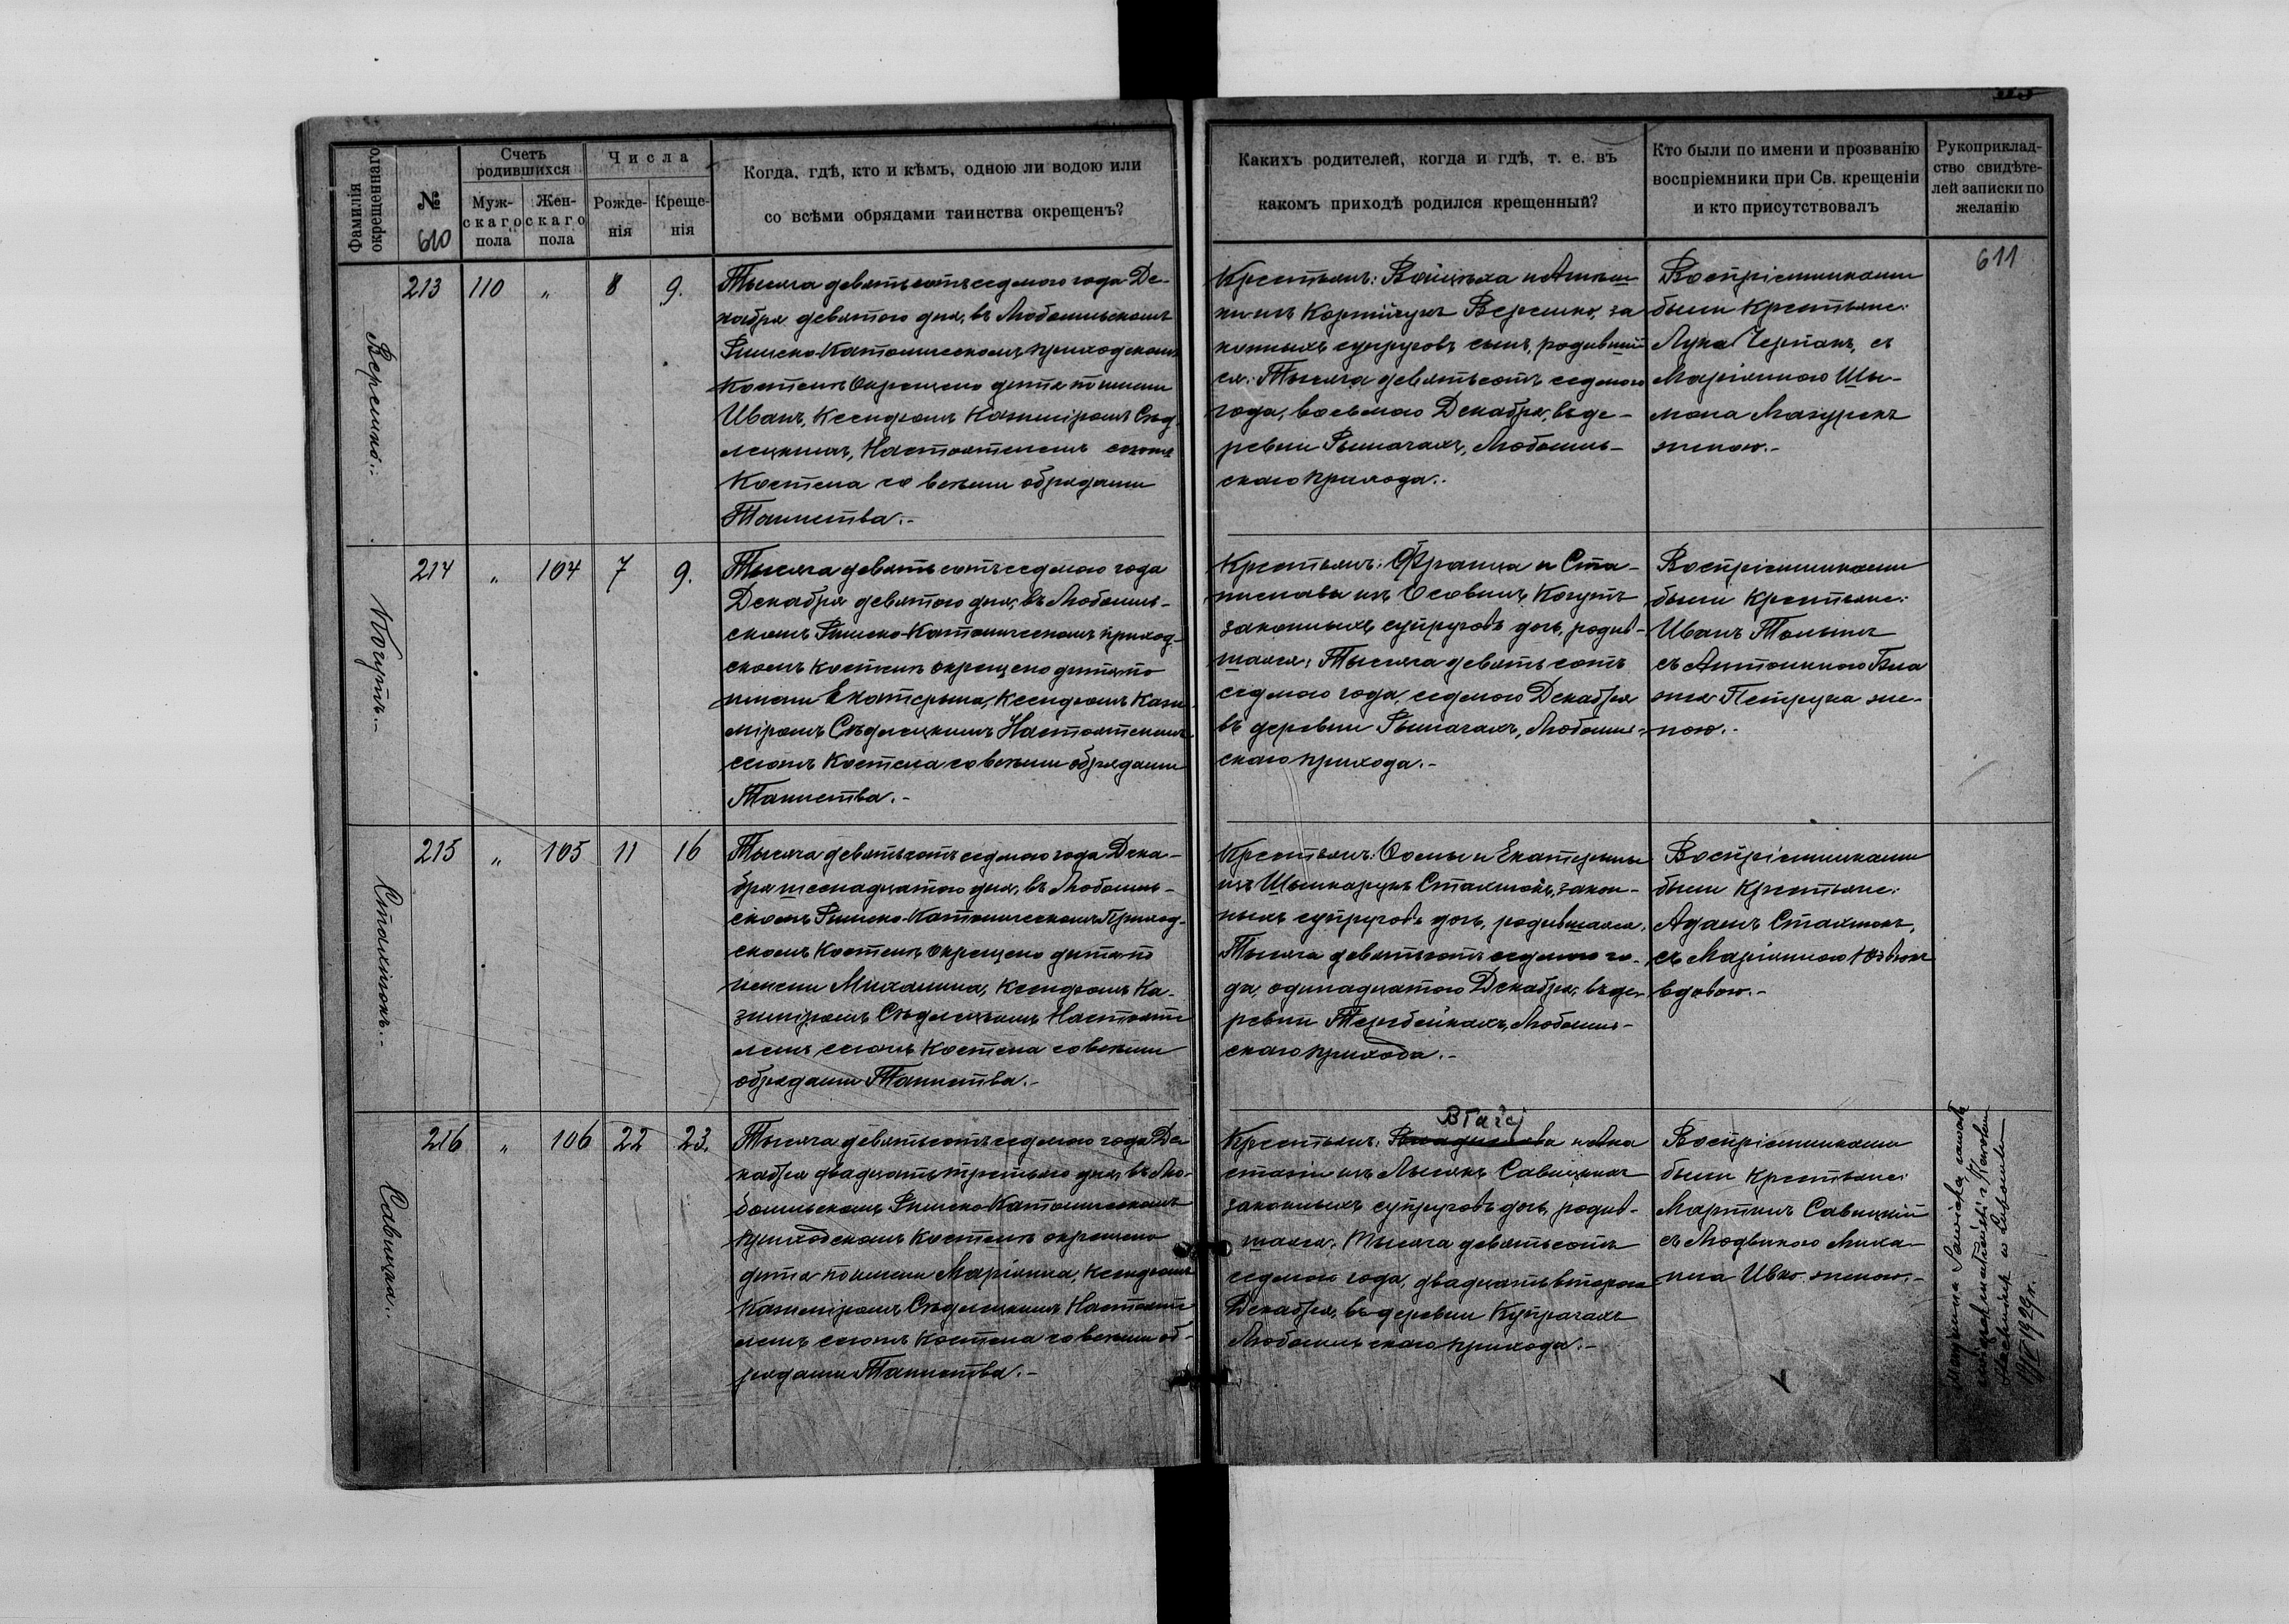 Фамилія окрещеннаго
№
610
Счетъ родившихся
Муж-
скаго
пола
Жен-
скаго
пола
Числа
Рожде-
нія
Креще-
нія
Когда, гдѣ, кто и кѣмъ, одною ли водою или
со всѣми обрядами таинства окрещенъ?
Какихъ родителей, когда и гдѣ, т. е. въ
какомъ приходѣ родился крещенный?
Кто были по имени и прозванію
воспріемники при Св. крещеніи
и кто присутствовалъ
Рукоприклад-
ство свидѣте-
лей записки по
желанію
611
Веремко.
213 110 „ 8 9.
Тысяча девятьсотъ седьмого года Де-
кабря девятого дня, въ Любомльскомъ
Римско-Католическомъ приходскомъ
Костелѣ окрещено дитя по имени
Иванъ, Ксендзомъ Казимiромъ Сѣд-
лецкимъ, Настоятелемъ сего
Костела со всѣми обрядами
Таинства.-
Крестьянъ: Войцѣха и
изъ Веремко, за
конныхъ супруговъ сынъ, родивший
ся: Тысяча девятьсотъ седьмого
года, восьмого Декабря, въ де-
ревни Рымачахъ, Любомль-
скаго прихода.-
Воспріемниками
были Крестьяне:
Лука Черпакъ, съ
Маріянною Шы-
мона Мазурекъ
женою.-
Когутъ.-
214 „ 104 7 9.
Тысяча девятьсотъ седьмого года
Декабря девятого дня, въ Любомль-
скомъ Римско-Католическомъ приход-
скомъ костелѣ окрещено дитя по
имени Екатерына, Ксендзомъ Кази-
мiромъ Сѣдлецкимъ Настоятелемъ
сего Костела со всѣми обрядами
Таинства.-
Крестьянъ: Франца и Ста-
ниславы изъ Когутъ
законныхъ супруговъ дочь, родив-
шаяся: Тысяча девятьсотъ
седьмого года, седьмого Декабря
въ деревни Рымачахъ, Любомль-
скаго прихода.-
Воспріемниками
были Крестьяне:
Иванъ
съ Антониною Бла
жея Петрука же-
ною.-
Стахнюкъ.-
215 „ 105 11 16
Тысяча девятьсотъ седьмого года Дека-
бря шеснадцатого дня, въ Любомль-
скомъ Римско-Католическомъ Приход-
скомъ Костелѣ окрещено дитя по
имени Михалина, Ксендзомъ Ка-
зимiромъ Сѣдлецкимъ Настояте
лемъ сего Костела со всѣми
обрядами Таинства.-
Крестьянъ: и Екатерыны
изъ Стахнюкъ, закон-
ныхъ супруговъ дочь, родившаяся.
Тысяча девятьсотъ седьмого го-
да, одинадцатого Декабря, въ де-
ревни Любомль-
скаго прихода.-
Воспріемниками
были Крестьяне:
Адамъ Стахнюкъ,
съ Маріянною
вдовою.-
Савицка.-
216 „ 106 22 23.
Тысяча девятьсотъ седьмого года Де
кабря двадцать третьяго дня, въ Лю-
бомльскомъ Римско-Католическомъ
приходскомъ Костелѣ окрещено
дитя по имени Маріянна, Ксендзомъ
Казимiромъ Сѣдлецкимъ Настояте
лемъ сего Костела со всѣми об-
рядами Таинства.-
Błażej
Крестьянъ: Владислава и Ана
стазіи изъ Лысякъ Савицкихъ
законныхъ супруговъ дочь, родив-
шаяся. Тысяча девятьсотъ
седьмого года, двадцать второго
Декабря, въ деревни Купрачахъ
Любомльскаго прихода.-
Воспріемниками
были Крестьяне:
Мартинъ Савицкій
съ Людвикою Миха-
ила Ивко женою.-
Marjanna Sawicka zawarła
związek małżeński z Karolem
w Lubomlu
1929 r.